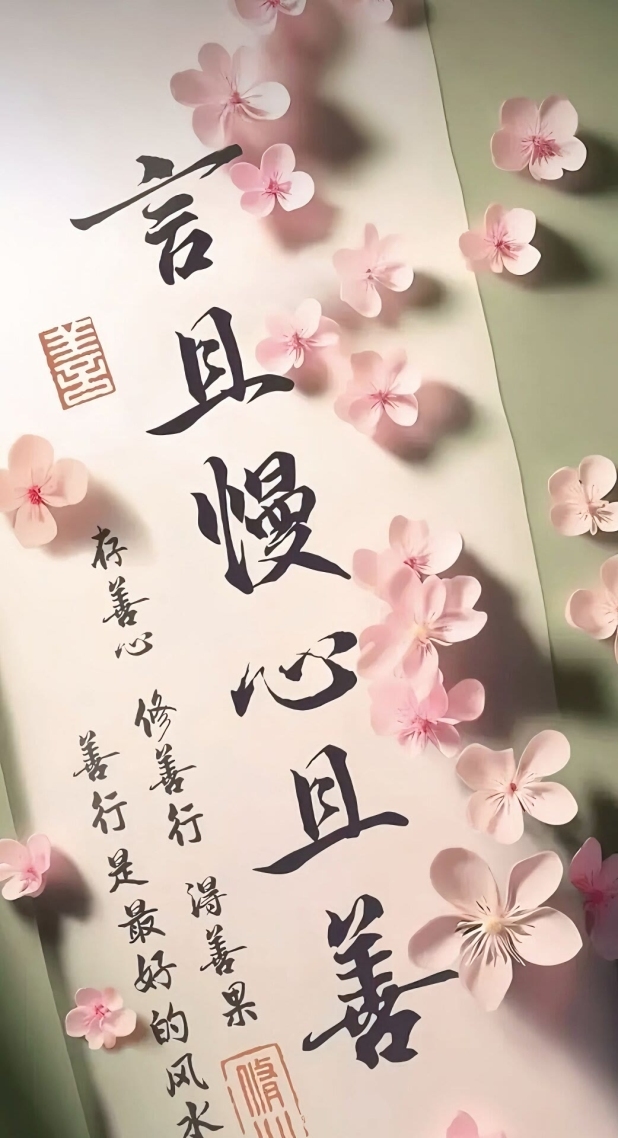 言且慢心且善
存善心 修善行 得善果
善行是最好的风水
善